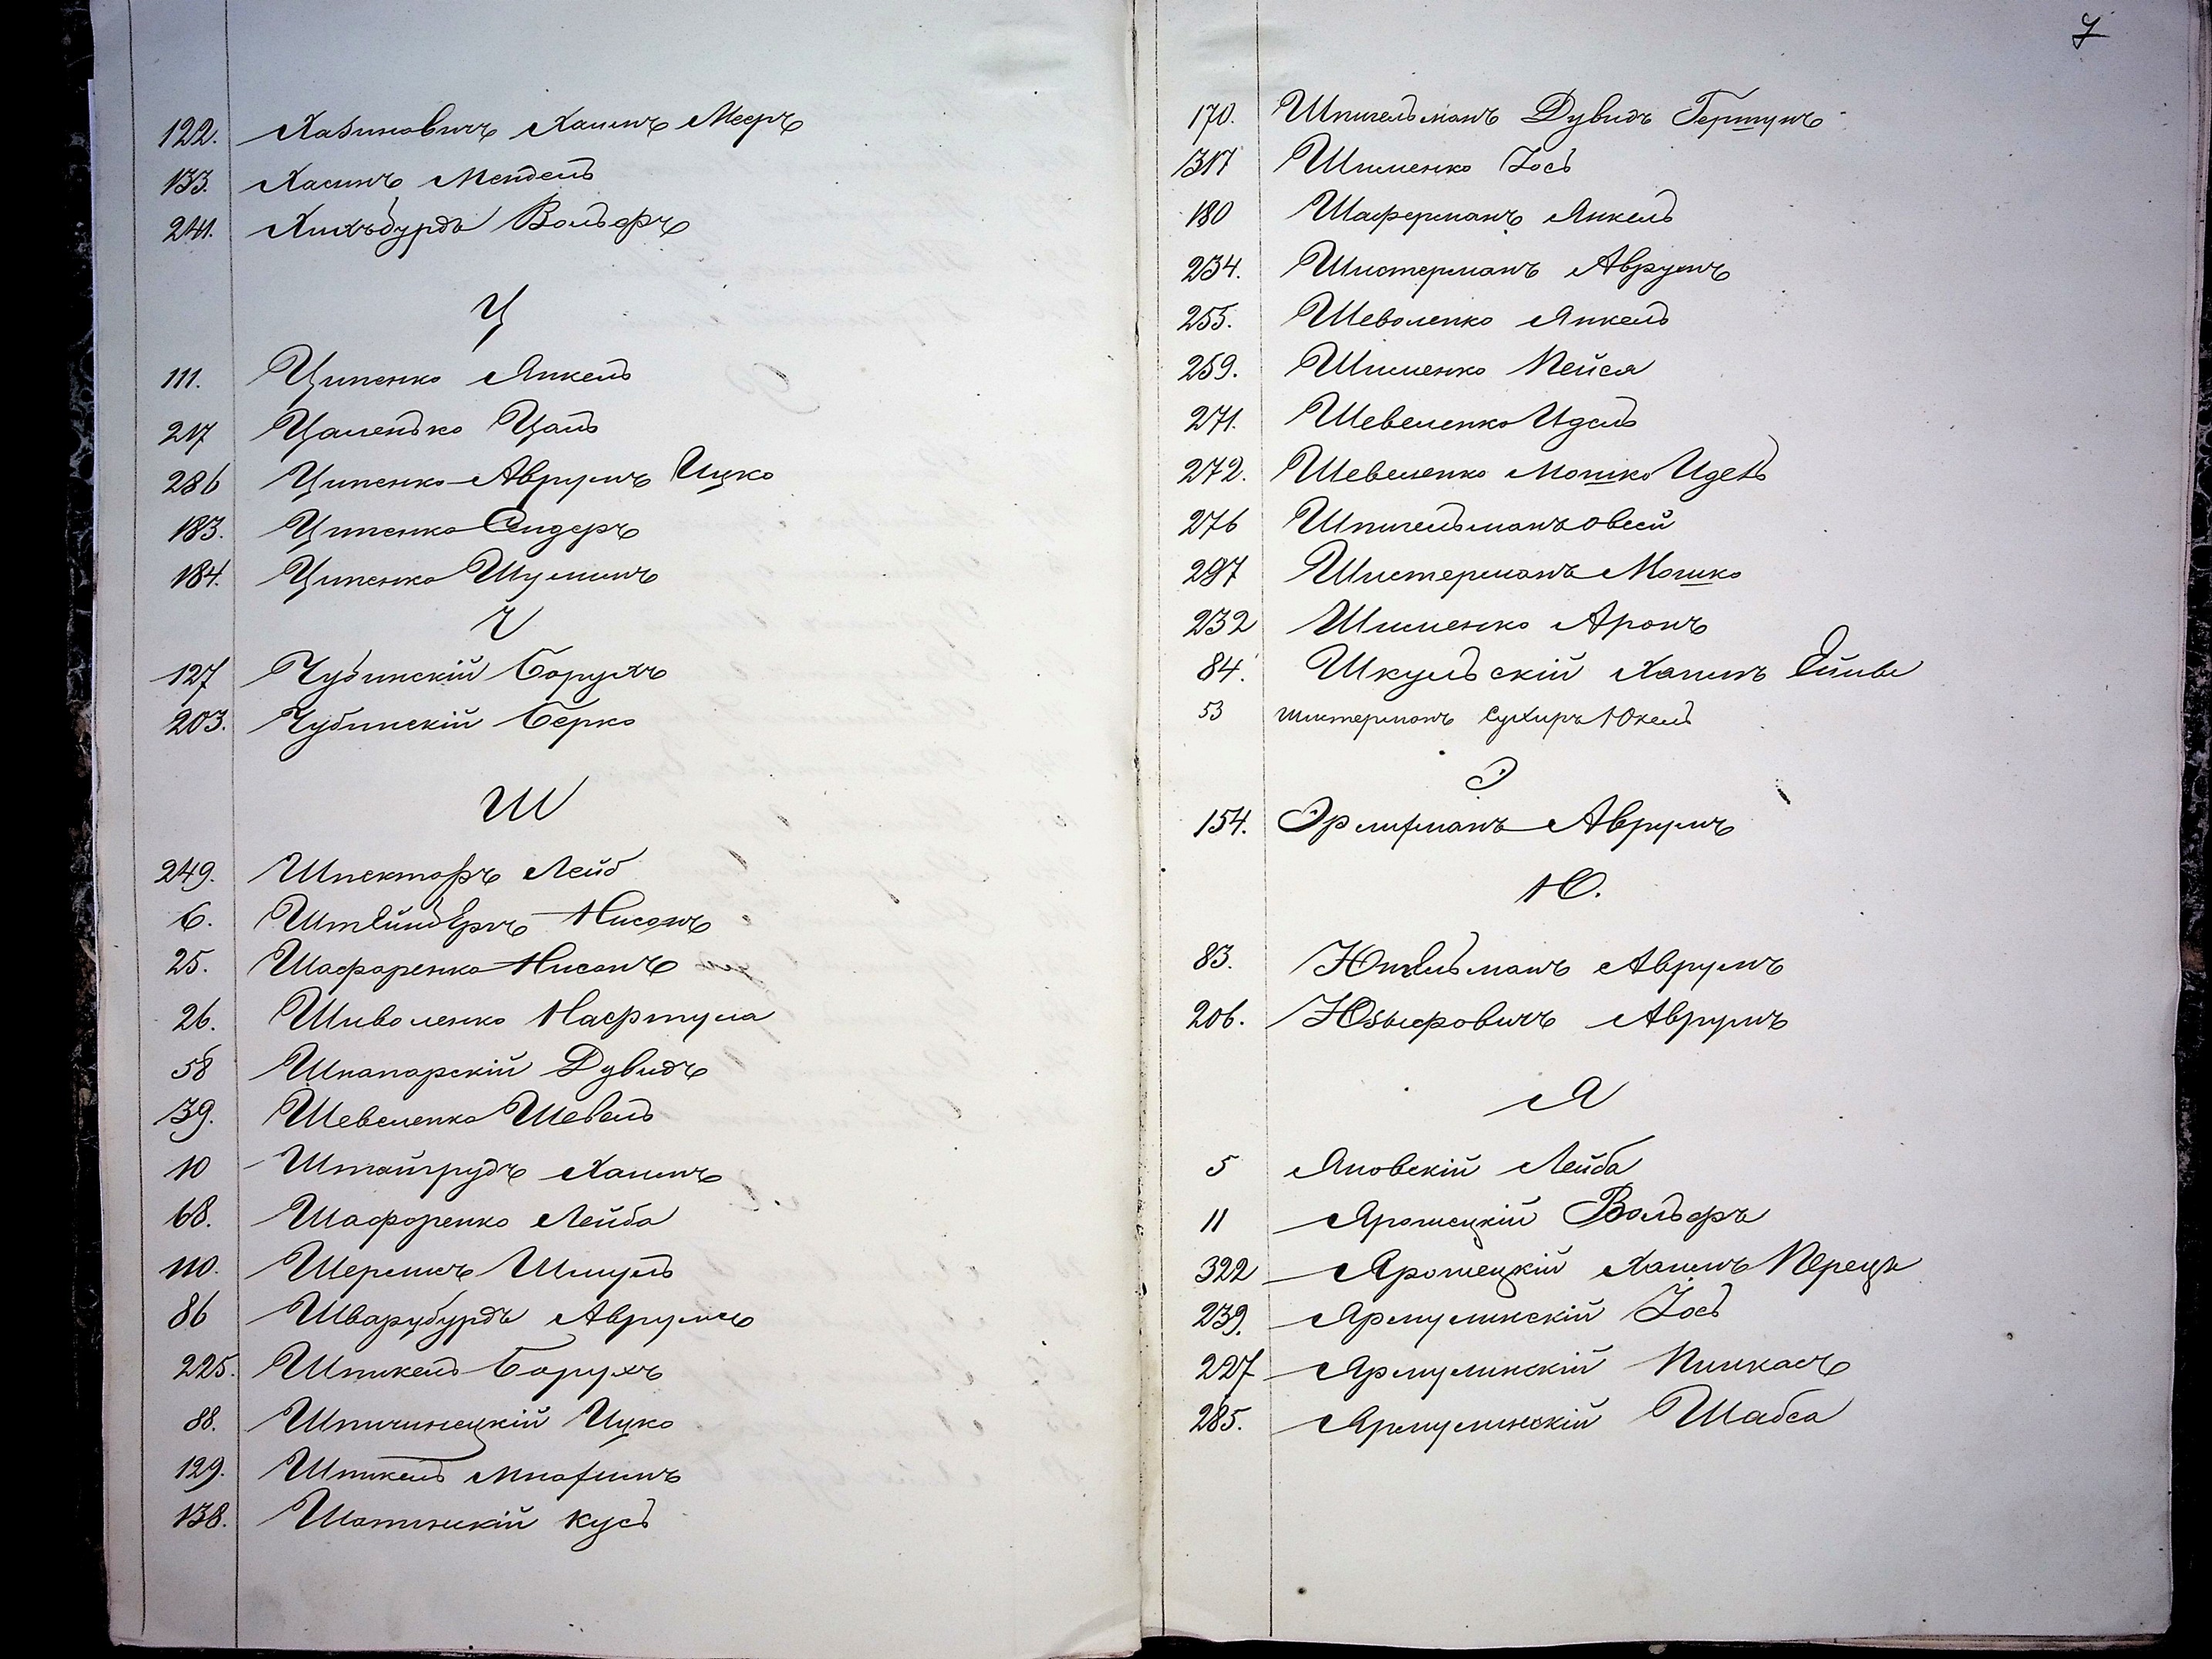 122. Хазиновичъ Хаимъ Мееръ
133. Хасинъ Мендель
241. Вольфъ
Ц
111. Ципенко Янкель
217 Цаленько Цаль
286 Ципенко Аврумъ Ицко
183. Ципенко Сендеръ
184. Ципенко Шулимъ
Ч
127 Чубинскій Борухъ
203. Чубинскій Берко
Ш
249. Шпекторъ Лейб
6. Штейнбергъ Нисонъ
25. Шафаренко Нисонъ
26. Шиволенко Нафтула
58 Шкапарскій Дувидъ
39. Шевеленко Шевель
10 Штайгрудъ Хаимъ
68. Шафоренко Лейба
110. Шеренисъ Шмуль
86 Шварцбурдъ Аврумъ
225. Шпикель Борухъ
88. Шпичинецкій Ицко
129. Шпикель Мнашимъ
138. Шатинскій Кусь
7
170. Шпигельманъ Дувидъ Гершунъ
317 Шименко Іось
180 Шаферманъ Янкель
234. Шистерманъ Аврумъ
255. Шеволенко Янкель
259. Шименко Пейся
271. Шевеленко Идель
272. Шевеленко Мошко Идель
276 Шпигельманъ Овсей
297 Шистерманъ Мошко
232 Шименко Аронъ
84. Шкульскій Хаимъ Лейба
53 Шистерманъ Сухиръ Юкель
Э
154. Эрлихманъ Аврумъ
Ю.
83. Юкельманъ Аврумъ
206. Юзыфовичъ Аврумъ
Я
5 Яновскій Лейба
11 Ярошецкій Вольфъ
322 Ярошецкій Хаимъ Перецъ
239. Ярмулинскій Іось
227 Ярмулинскій Пинкасъ
285. Ярмулинскій Шабса